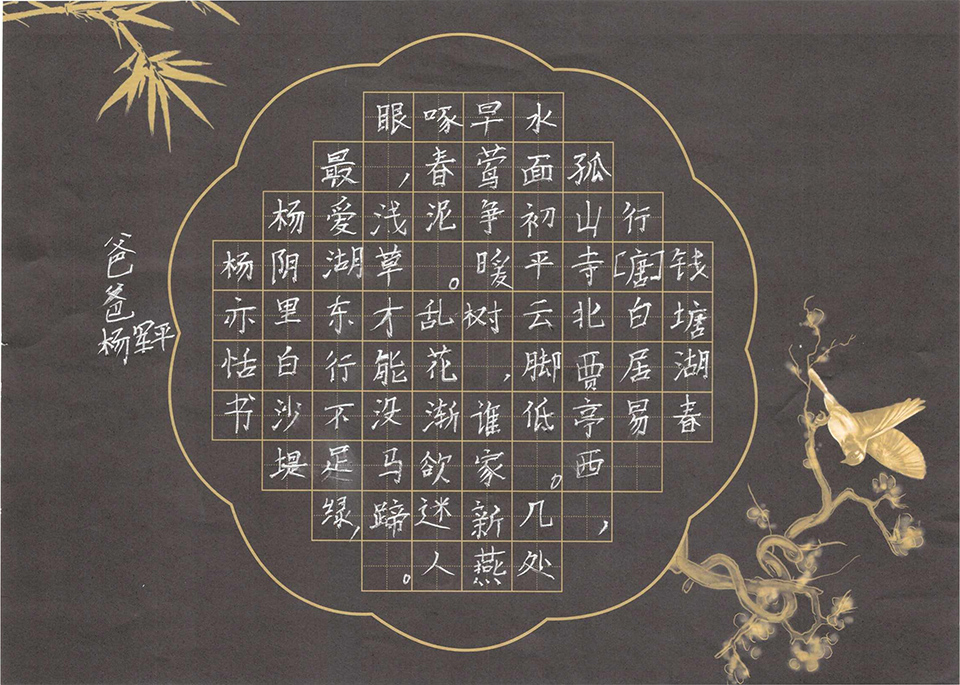 钱塘湖春
行[唐]白居易
孤山寺北贾亭西,
水面初平云脚低。几处
早莺争暖树,谁家新燕
啄春泥。乱花渐欲迷人
眼,浅草才能没马蹄。
最爱湖东行不足绿,
杨阴里白沙堤
杨亦恬书
爸爸杨军平